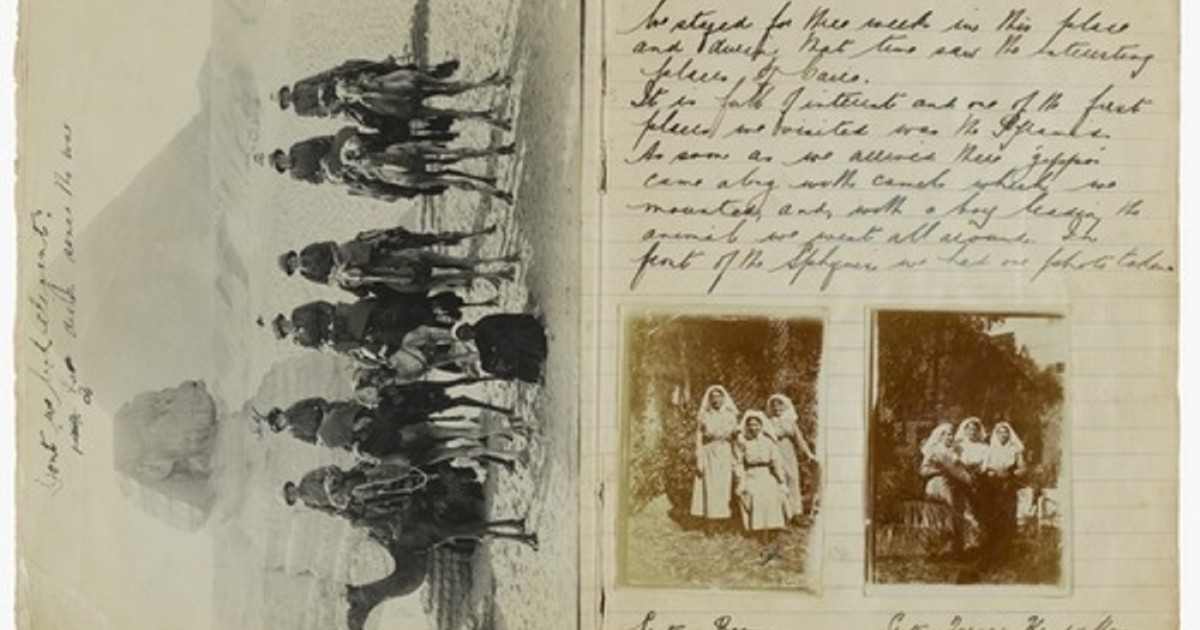 We stayed for three weeks in this place
and during that time saw the interesting
places of Cairo.
It is full of interest and one of the first
places we visited was the
As soon as we arrived there 'gippos'
came along with camels which we
mounted, and, with a boy leading the
animal we went all around. In
front of the Sphynx we had our photo taken
Dont we look elegant?
since the war
Sister